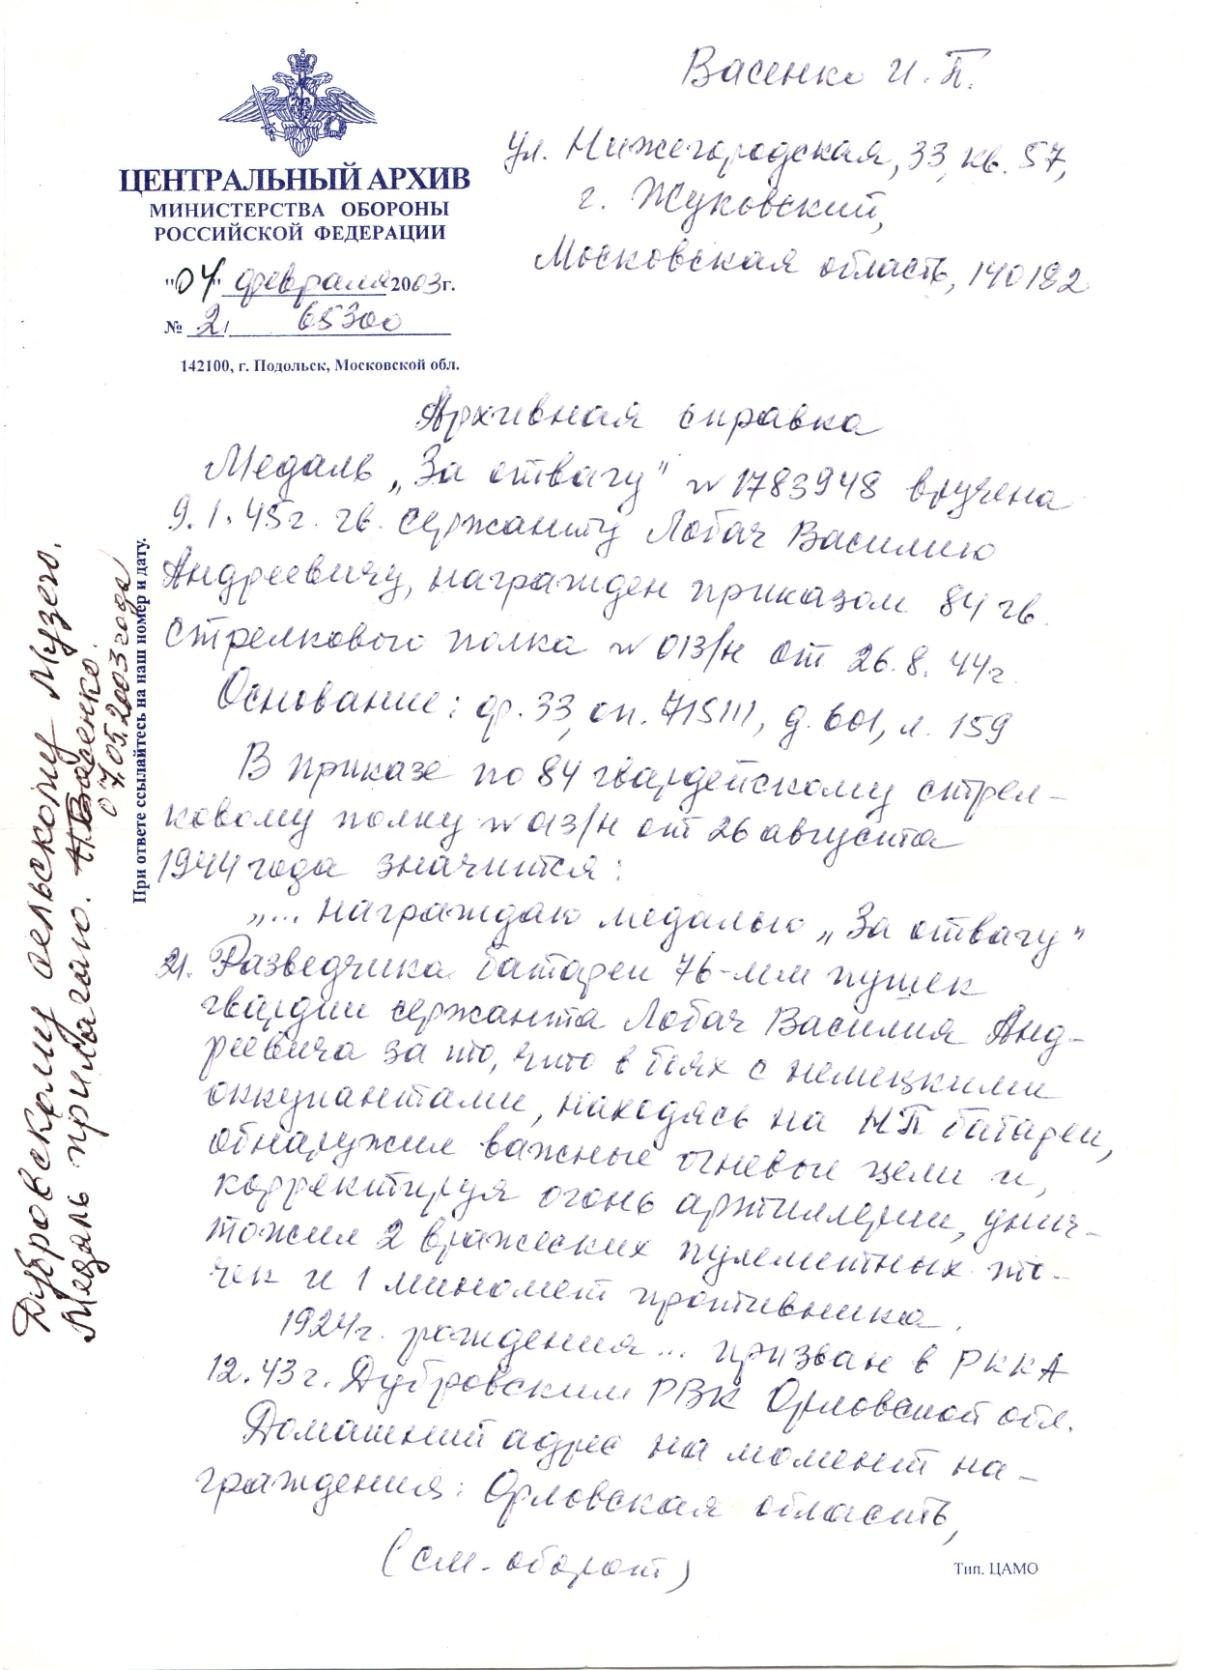 Васенко И. П.
ул. Нижегородская, 33, кв. 57,
г. Жуковский,
Московская область, 140182
ЦЕНТРАЛЬНЫЙ АРХИВ
МИНИСТЕРСТВА ОБОРОНЫ
РОССИЙСКОЙ ФЕДЕРАЦИИ
"04" февраля 2003 г.
№ 2/ 65300
142100, г. Подольск, Московской обл.
Архивная справка
Медаль „За отвагу" № 1783948 вручена
9.1.45 г. гв. сержанту Лобач Василию
Андреевичу, награжден приказом 84 гв.
стрелкового полка № 013/н от 26.8.44 г.
Основание: ф. 33, оп. 715111, д. 601, л. 159
В приказе по 84 гвардейскому стрел-
ковому полку № 013/н от 26 августа
1944 года значится:
„... награждаю медалью „За отвагу"
21. Разведчика батареи 76-мм пушек
гвардии сержанта Лобач Василия Анд-
реевича за то, что в боях с немецкими
оккупантами, находясь на НП батареи,
обнаружил важные огневые цели и,
корректируя огонь артиллерии, унич-
тожил 2 вражеских пулеметных то-
чек и 1 миномет противника.
1924 г. рождения... призван в РККА
12.43 г. Дубровским РВК Орловской обл.
Домашний адрес на момент на-
граждения: Орловская область,
(см. оборот)
Тип. ЦАМО
При ответе ссылайтесь на наш номер и дату.
Дубровскому сельскому музею.
Медаль прилагаю. И.Васенко.
07.05.2003 года